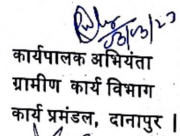 03/03/23
कार्यपालक अभियंता
ग्रामीण कार्य विभाग
कार्य प्रमंडल, दानापुर ।